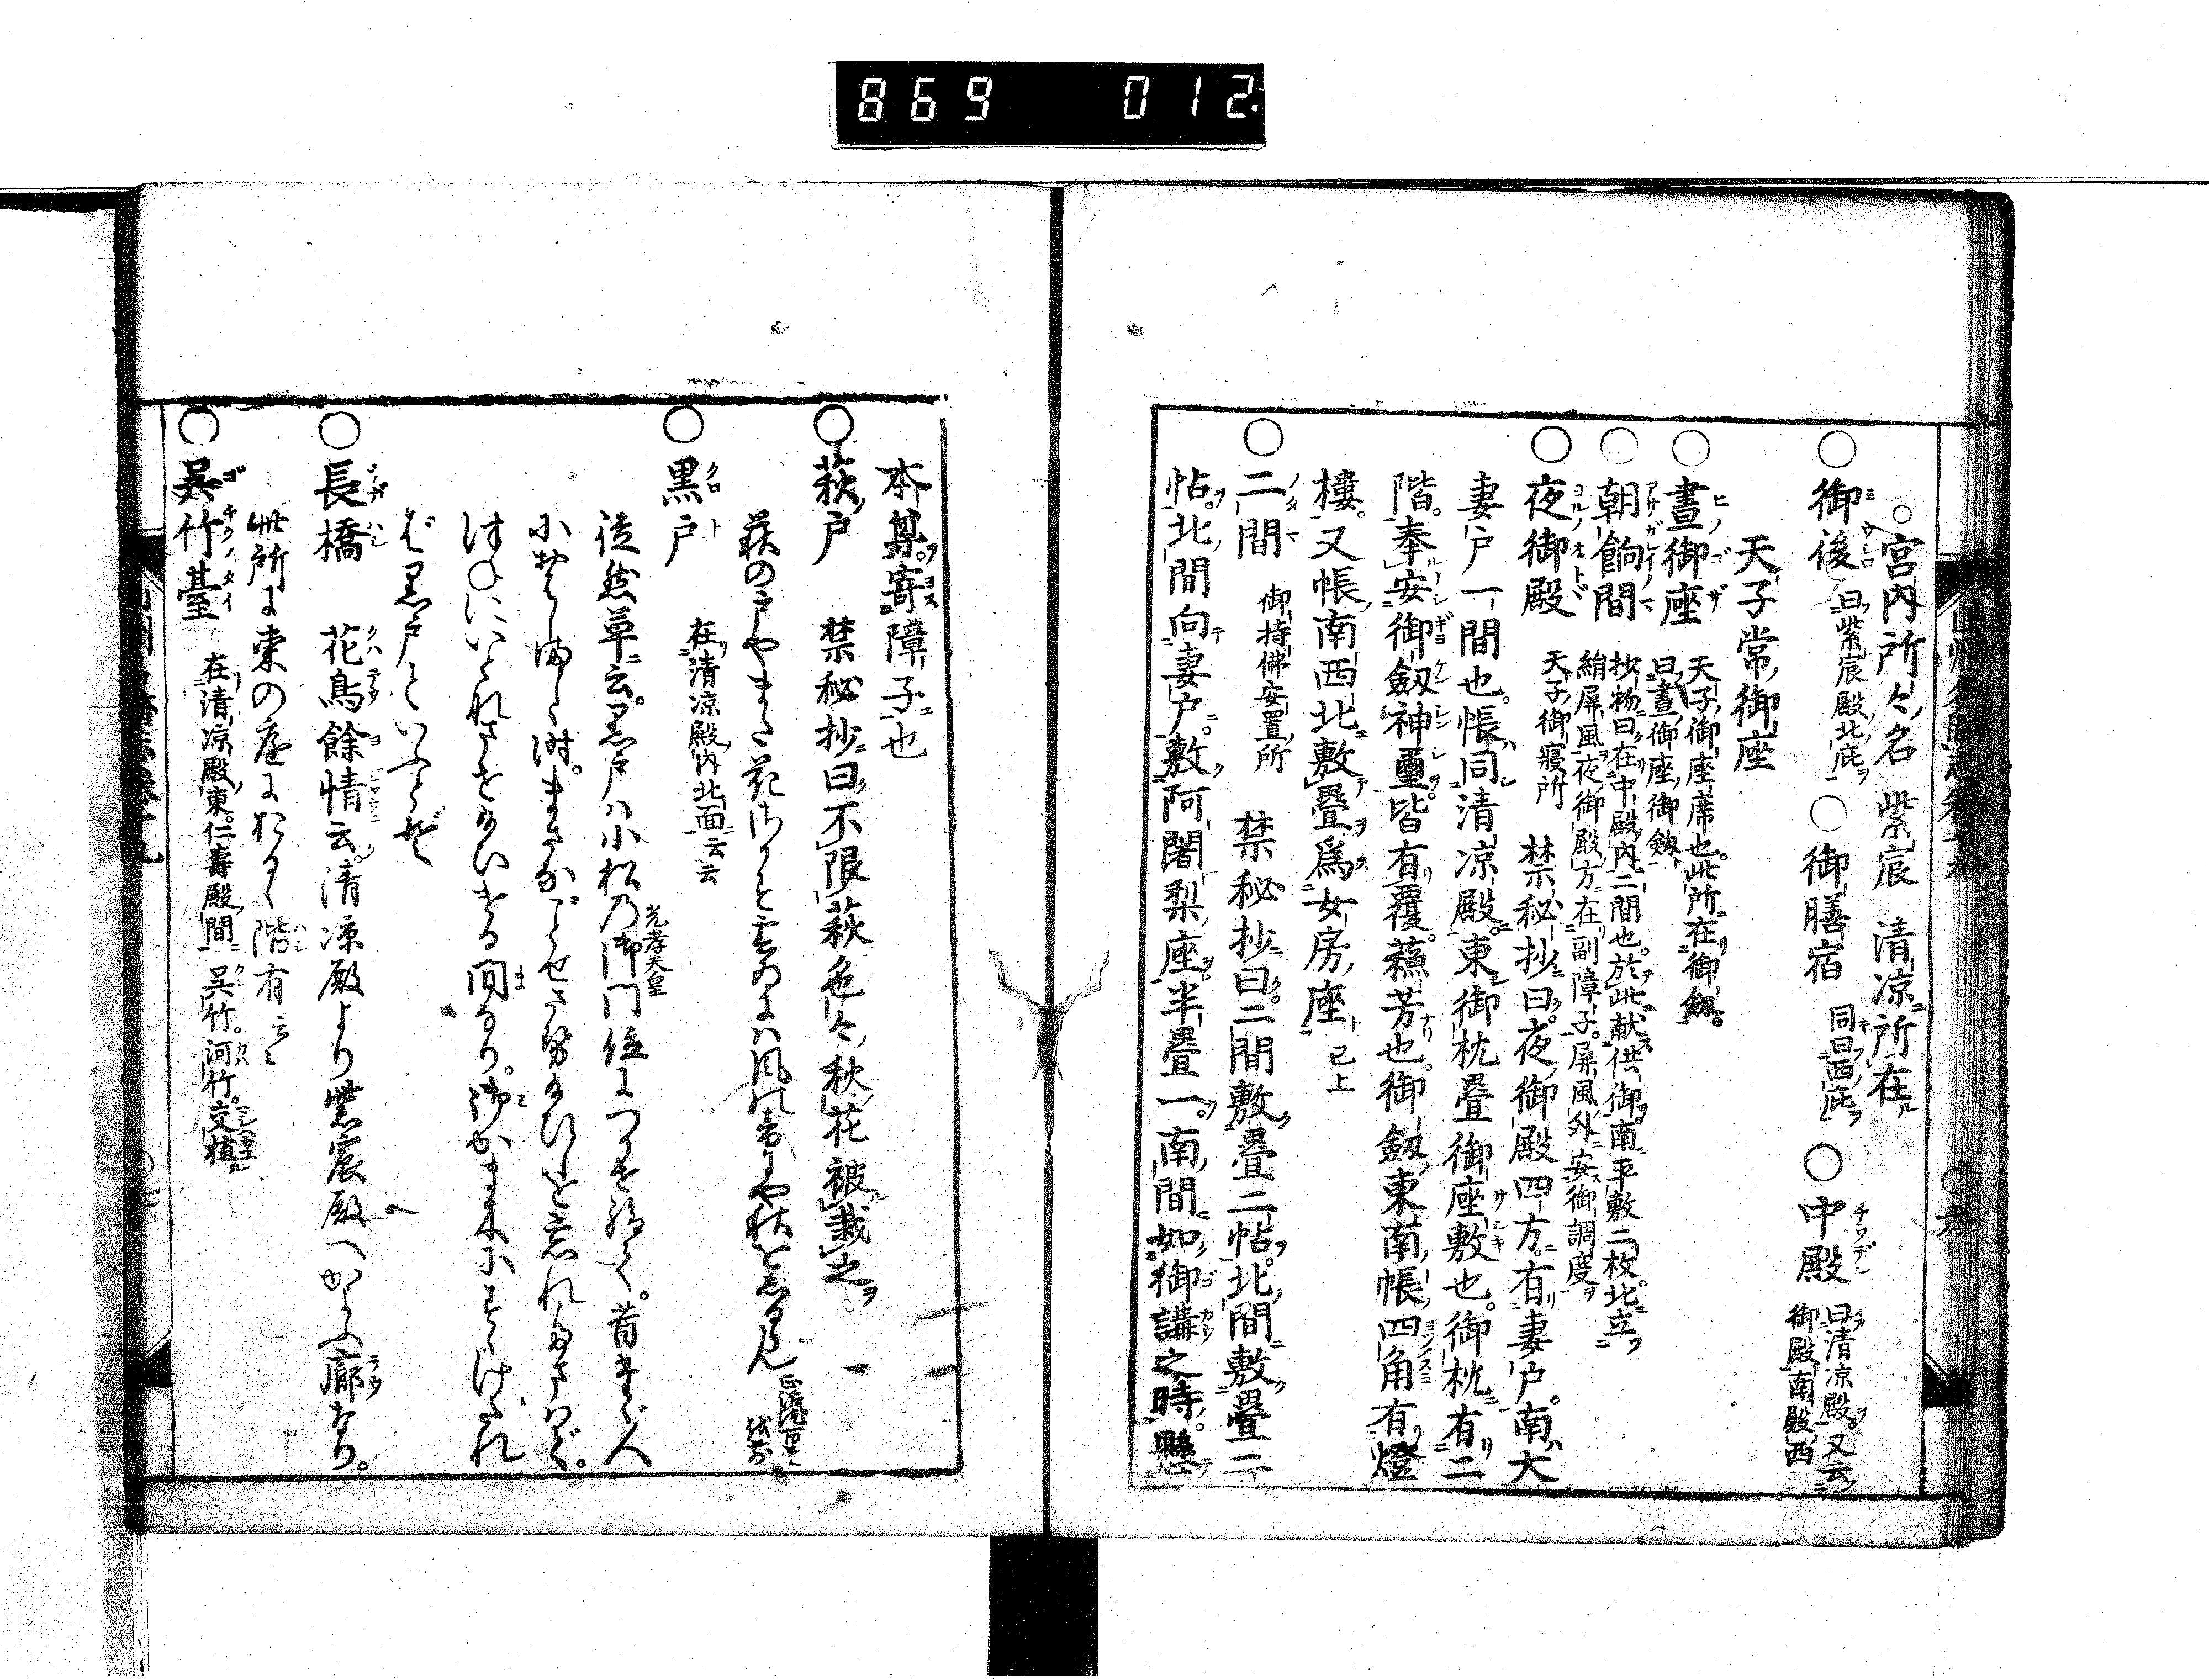 869 012
○宮内所々名 紫宸 清涼所在
○御後 曰紫宸殿北庇 ○御膳宿 同曰西庇 ○中殿 曰清凉殿又云御殿南殿西
天子常御座
○晝御座 天子御座席也此所在御劔曰晝御座御劔
○朝餉間 抄物曰在中殿内二間也於此献供御南平敷二枚北立
絹屏風夜御殿方在副障子屏風外安御調度
○夜御殿 天子御寢所 禁秘抄曰夜御殿四方有妻戸南大
妻戸一間也帳同清凉殿東御枕畳御座敷也御枕有二
階奉安御劔神璽皆有覆蘓芳也御劔東南帳四角有燈
樓又帳南西北敷畳爲女房座 已上
○二間 御持佛安置所 禁秘抄曰二間敷畳二帖北間敷畳二
帖北間向妻戸敷阿闍梨座半畳一南間如御講之時懸
本尊寄障子也
○萩戸 禁秘抄曰不限萩色々秋花被栽之
萩の戸やまた花さかぬ
○黒戸 在清凉殿内北面云云
徒然草云黒戸ハ小松乃御門 光孝天皇 位につかせ給て昔たゞ人
におハしましゝ時まさな事せさせ給ひしを忘れ給ハで
常にいとなませ給ひける間なり御かま木にすゝけたれ
ば黒戸といふとぞ
○長橋 花鳥餘情云清凉殿より紫宸殿へかよふ廊なり
此所に東の庭におるゝ階有 云々
○呉竹臺 在清凉殿東仁壽殿間呉竹河竹交植